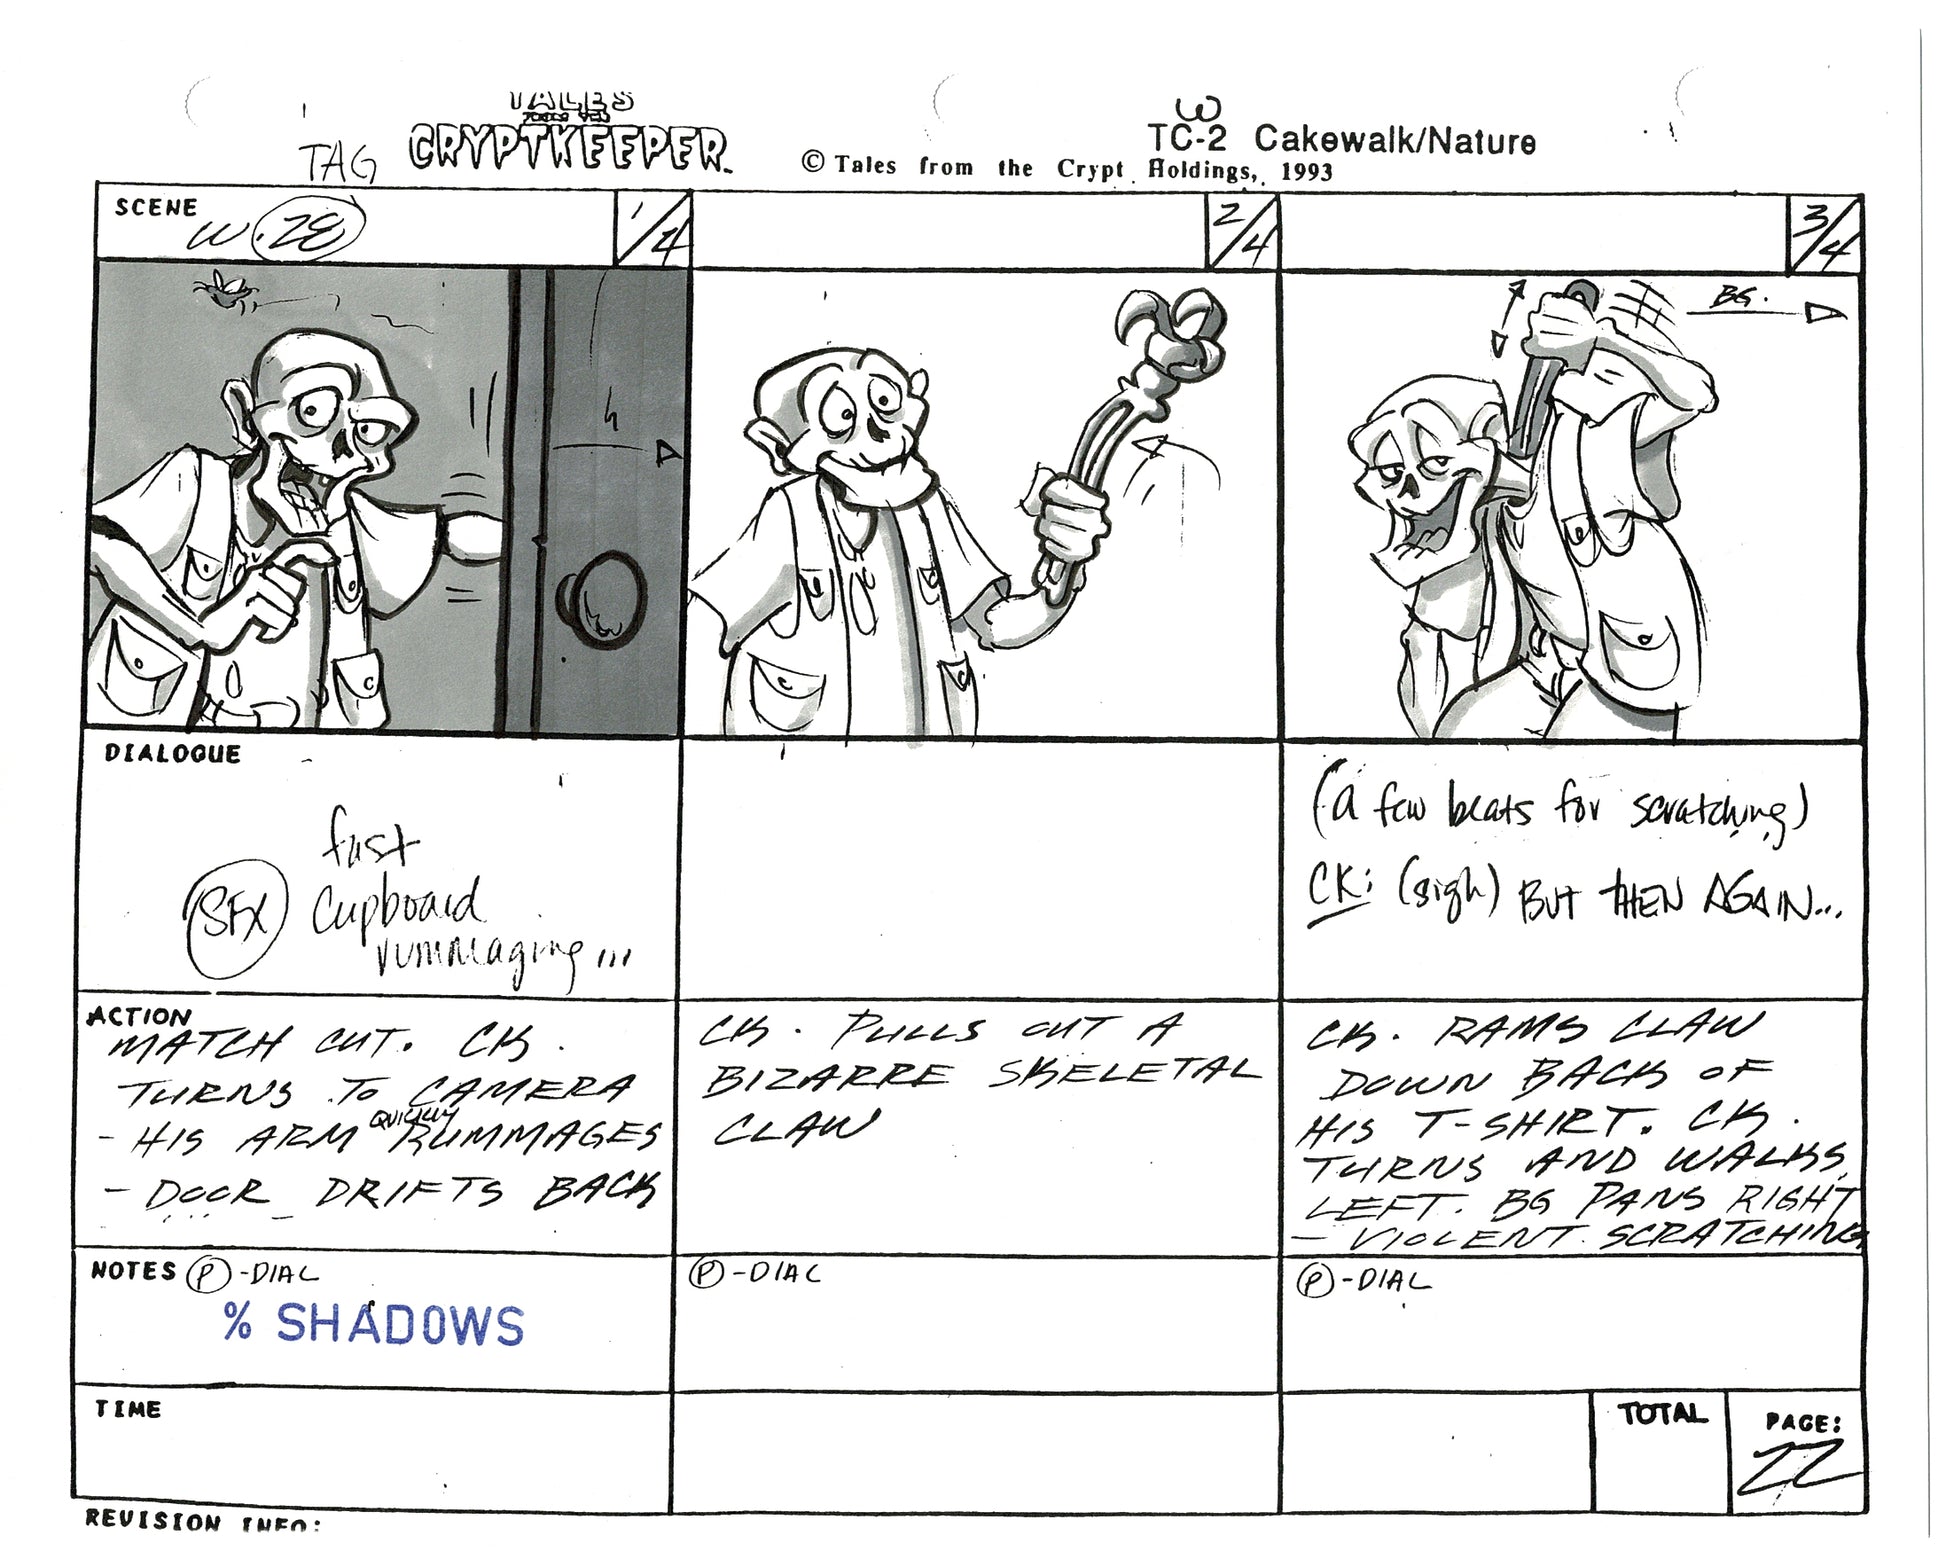 TALES
FROM THE
CRYPTKEEPER™
TAG
W
TC-2 Cakewalk/Nature
© Tales from the Crypt Holdings, 1993
SCENE
W.28
1/4
2/4
3/4
BG.
DIALOGUE
fast
SFX cupboard
rummaging...
(a few beats for scratching)
CK: (sigh) BUT THEN AGAIN...
ACTION
MATCH CUT. CK.
TURNS TO CAMERA
- HIS ARM QUICKLY RUMMAGES
- DOOR DRIFTS BACK
CK. PULLS OUT A
BIZARRE SKELETAL
CLAW
CK. RAMS CLAW
DOWN BACK OF
HIS T-SHIRT. CK.
TURNS AND WALKS
LEFT. BG PANS RIGHT
- VIOLENT SCRATCHING
NOTES P-DIAL
% SHADOWS
P-DIAL
P-DIAL
TIME
TOTAL
PAGE:
22
REVISION INFO: